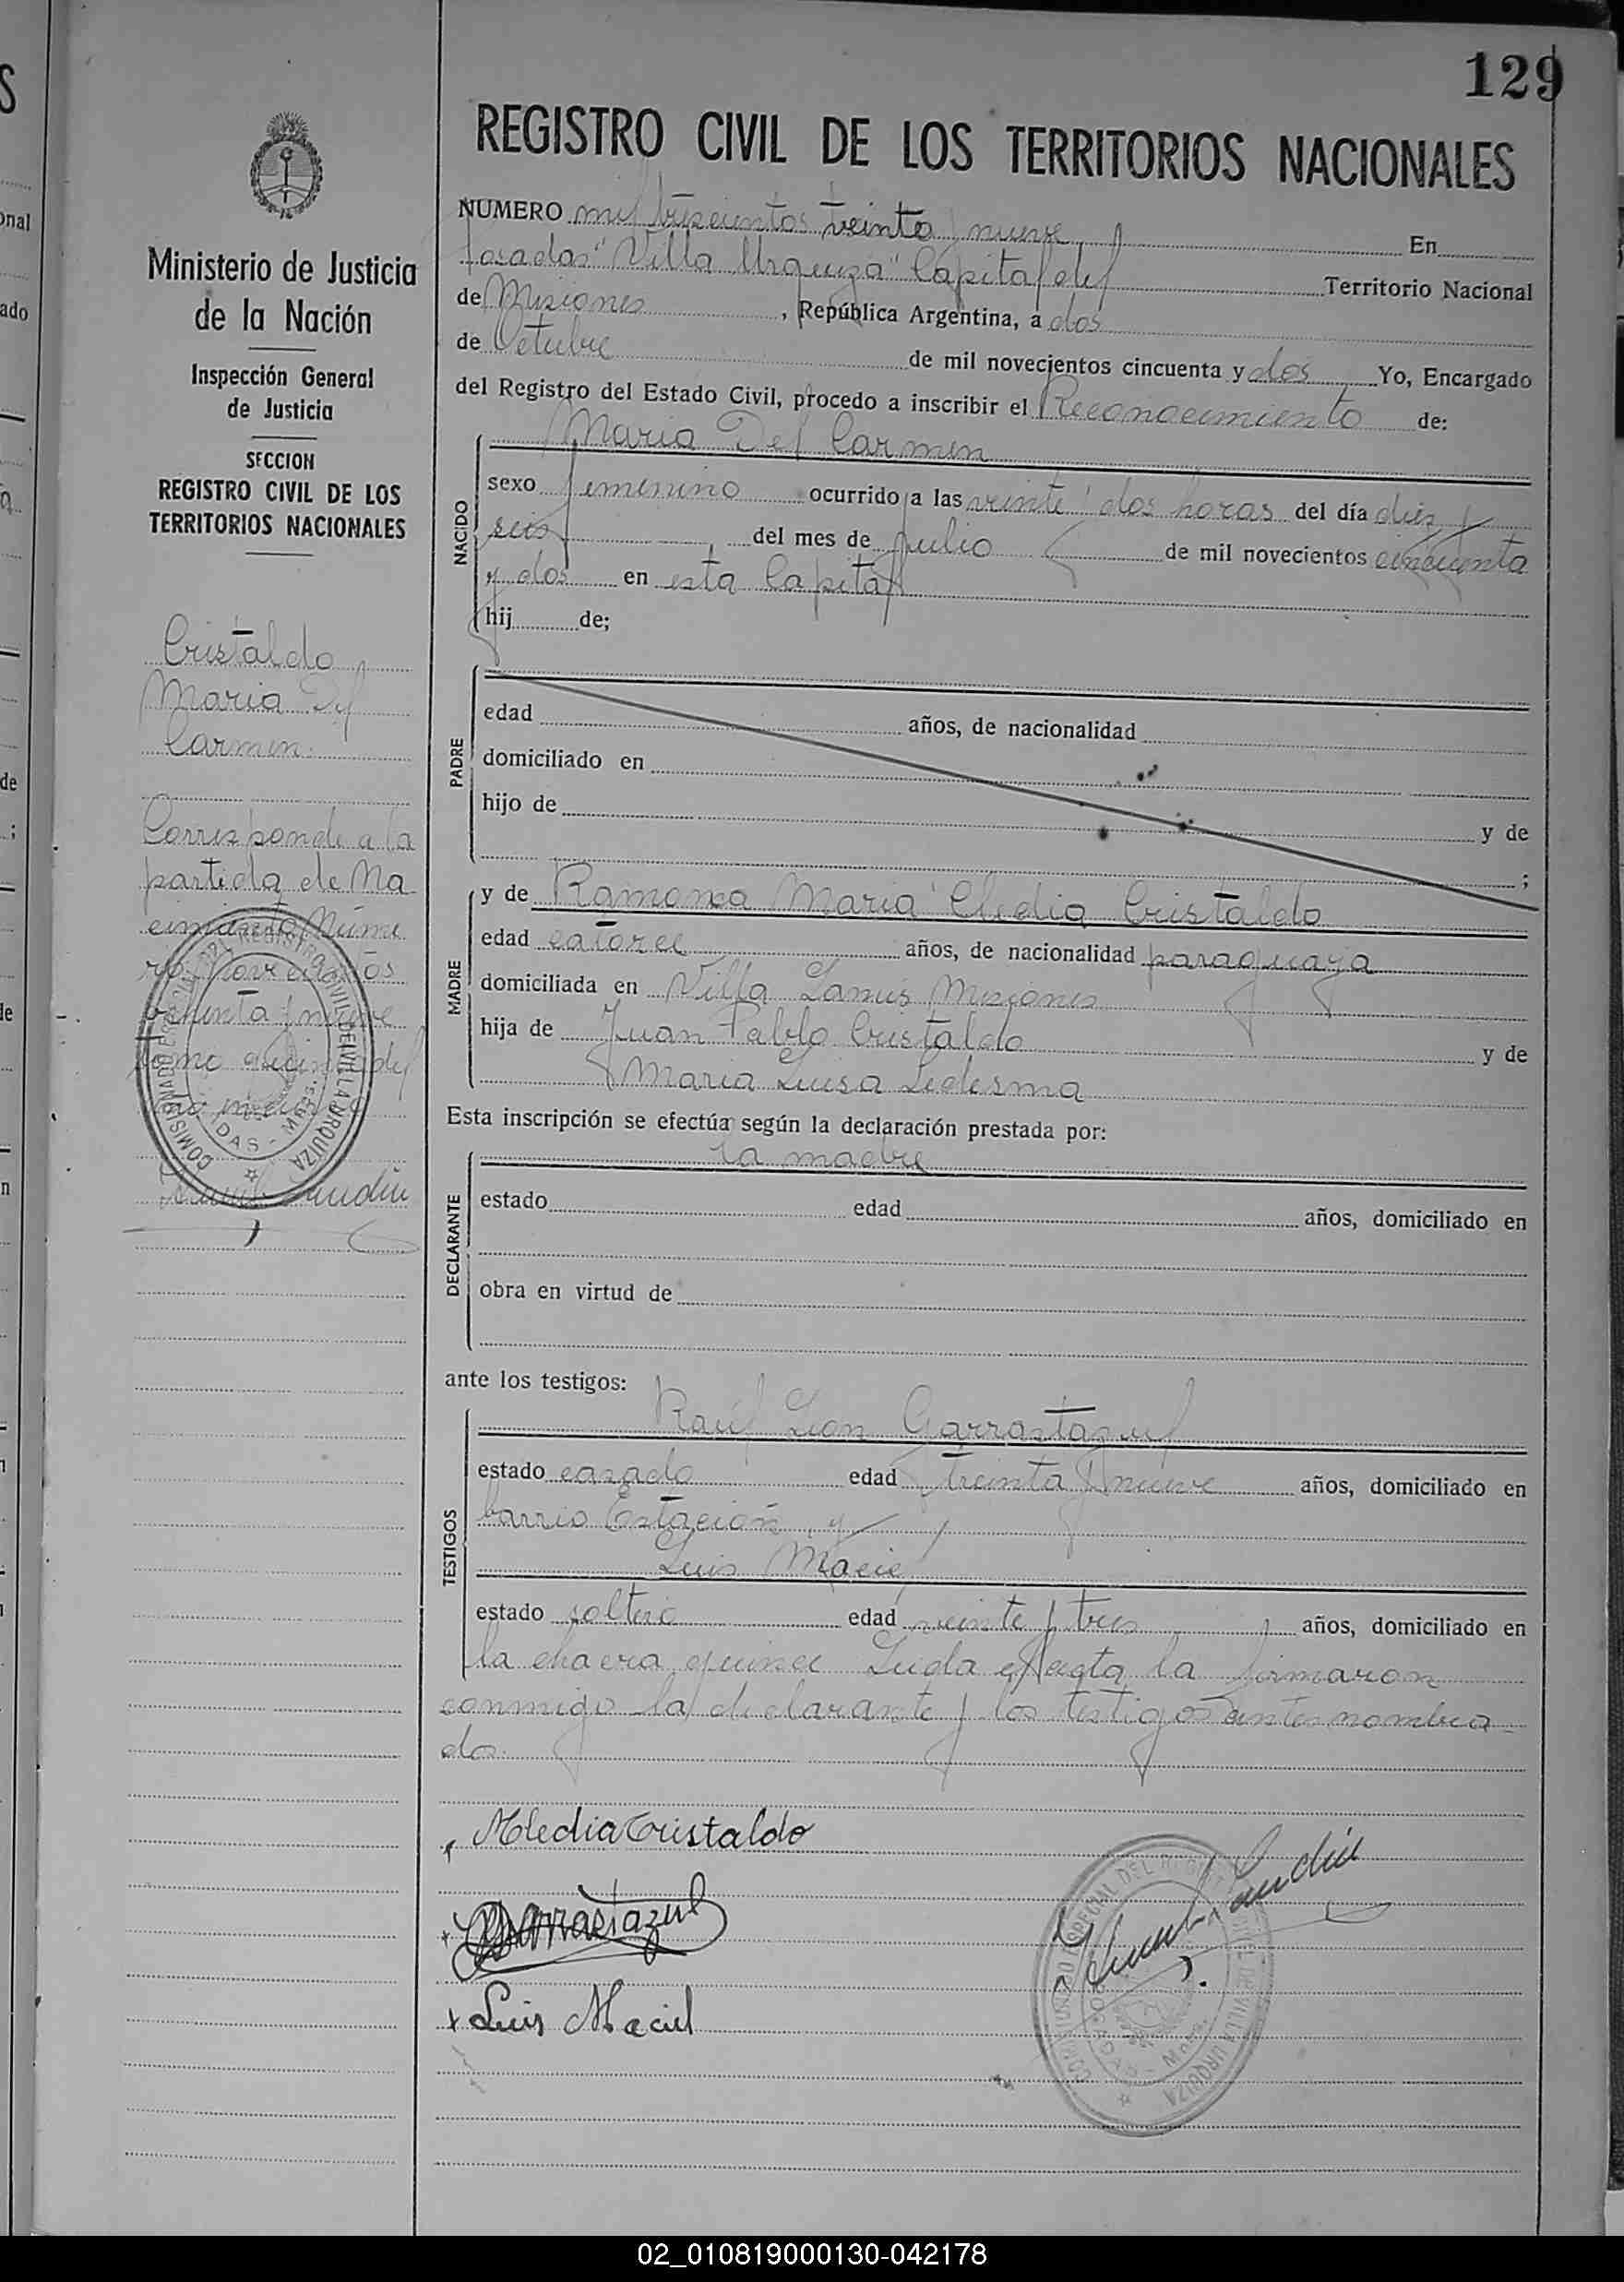 129
REGISTRO CIVIL DE LOS TERRITORIOS NACIONALES
Ministerio de Justicia
de la Nación
Inspección General
de Justicia
SECCION
REGISTRO CIVIL DE LOS
TERRITORIOS NACIONALES
Cristaldo
Maria Del
Carmen.
Corresponde a la
partida de Na
cimiento Núme
ro novecientos
ochenta y nueve
tomo quince del
NUMERO mil trescientos treinta y nueve En
Posadas "Villa Urquiza" Capital del Territorio Nacional
de Misiones, República Argentina, a dos
de Octubre de mil novecientos cincuenta y dos Yo, Encargado
del Registro del Estado Civil, procedo a inscribir el Reconocimiento de:
NACIDO
Maria Del Carmen
sexo femenino ocurrido a las veinte y dos horas del día diez y
seis del mes de julio de mil novecientos cincuenta
y dos en esta Capital
hij de;
PADRE
edad años, de nacionalidad
domiciliado en
hijo de y de
;
MADRE
y de Ramona Maria Cledia Cristaldo
edad catorce años, de nacionalidad paraguaya
domiciliada en Villa Lanus Misiones
hija de Juan Pablo Cristaldo y de
Maria Luisa Ledesma
Esta inscripción se efectúa según la declaración prestada por:
DECLARANTE
la madre
estado edad años, domiciliado en
obra en virtud de
ante los testigos:
TESTIGOS
Raúl Leon Garrastazul
estado casado edad treinta y nueve años, domiciliado en
barrio Estación y
Luis Maciel
estado soltero edad veinte y tres años, domiciliado en
la chacra quince Leida el acta la firmaron
conmigo la declarante y los testigos antes nombra-
dos.
Cristaldo
Garrastazul
Luis Maciel
02_010819000130-042178